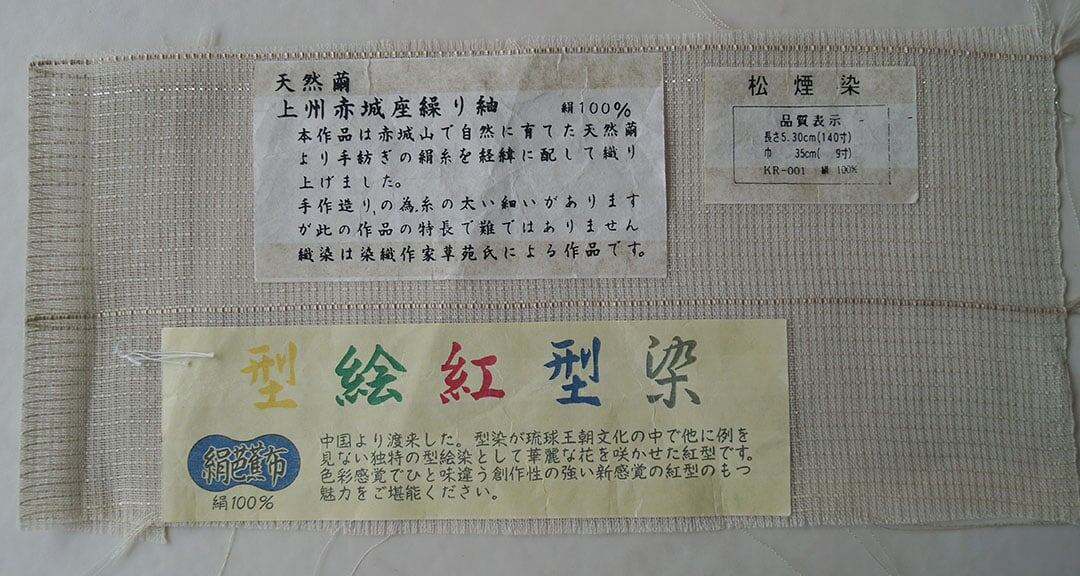 天然繭
上州赤城座繰り紬 絹100%
本作品は赤城山で自然に育てた天然繭
より手紡ぎの絹糸を経緯に配して織り
上げました。
手作造りの為糸の太い細いがあります
が此の作品の特長で難ではありません
織染は染織作家草苑氏による作品です。
松煙染
品質表示
長さ5.30cm(140寸)
巾 35cm( 9寸)
KR-001 絹 100%
型絵紅型染
中国より渡来した。型染が琉球王朝文化の中で他に例を
見ない独特の型絵染として華麗な花を咲かせた紅型です。
色彩感覚でひと味違う創作性の強い新感覚の紅型のもつ
魅力をご堪能ください。
絹芭蕉布
絹100%